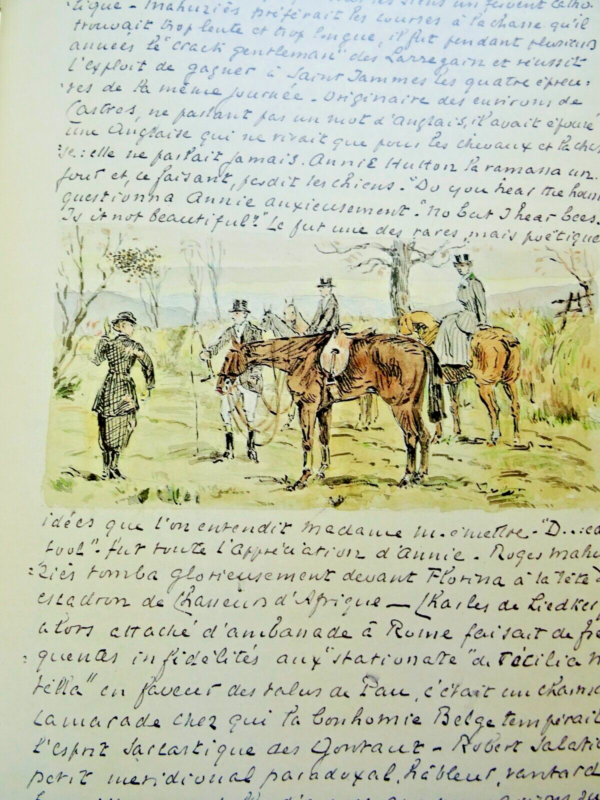 tique - Mahuziès préférait les courses à la chasse qu'il
trouvait trop lente et trop longue, il fut pendant plusieurs
années le "crack gentleman" des Larregain et réussit
l'exploit de gagner à Saint Jammes les quatre épreu-
ves de la même journée. Originaire des environs de
Castres, ne parlant pas un mot d'Anglais, il avait épousé
une Anglaise qui ne vivait que pour les chevaux et la chas
se: elle ne parlait jamais. Annie Hutton la ramassa un
jour et, ce faisant, perdit les chiens. "Do you hear the houn
questionna Annie anxieusement. "No but I hear bees.
Is it not beautiful?" Ce fut une des rares, mais poétiques
idées que l'on entendit Madame M. émettre - "D...ed
fool" - fut toute l'appréciation d'Annie. Roger Mahu-
ziès tomba glorieusement devant Florina à la tête d
escadron de Chasseurs d'Afrique - Charles de Liedker
alors attaché d'ambassade à Rome faisait de fré
quentes infidélités aux "stationate" de Cécilia M
tella" en faveur des talus de Pau, c'était un charma
camarade chez qui la bonhomie Belge tempérait
l'esprit sarcastique des Gontaut - Robert Salati
petit méridional paradoxal, hâbleur, vantard